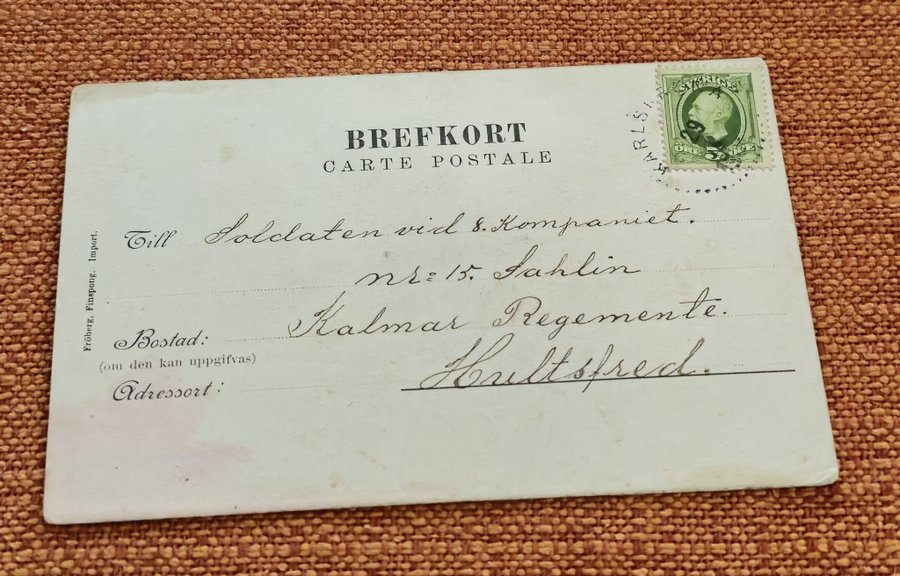 BREFKORT
CARTE POSTALE
SVERIGE
ÖRE 5 ÖRE
29
Till Soldaten vid 8. Kompaniet.
nr= 15. Sahlin
Bostad: Kalmar Regemente.
(om den kan uppgifvas)
Adressort: Hultsfred.
Fröberg, Finspong. Import.